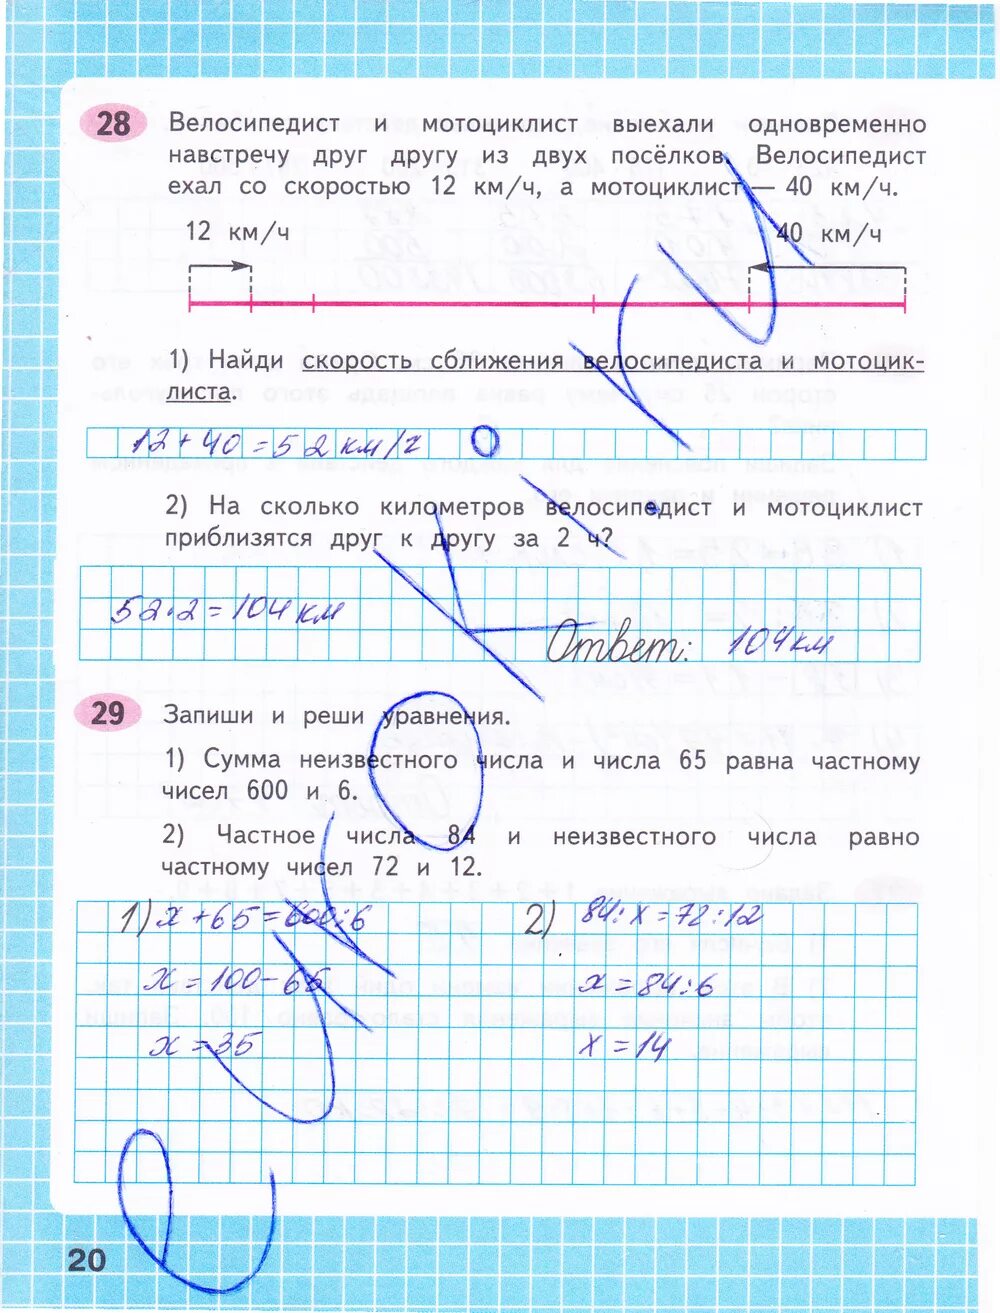 28 Велосипедист и мотоциклист выехали одновременно
навстречу друг другу из двух посёлков. Велосипедист
ехал со скоростью 12 км/ч, а мотоциклист — 40 км/ч.
12 км/ч 40 км/ч
1) Найди скорость сближения велосипедиста и мотоцик-
листа.
12 + 40 = 52 км/ч
2) На сколько километров велосипедист и мотоциклист
приблизятся друг к другу за 2 ч?
52 · 2 = 104 км
Ответ: 104 км
29 Запиши и реши уравнения.
1) Сумма неизвестного числа и числа 65 равна частному
чисел 600 и 6.
2) Частное числа 84 и неизвестного числа равно
частному чисел 72 и 12.
1) x + 65 = 600 : 6 2) 84 : x = 72 : 12
x = 100 - 65 x = 84 : 6
x = 35 x = 14
20